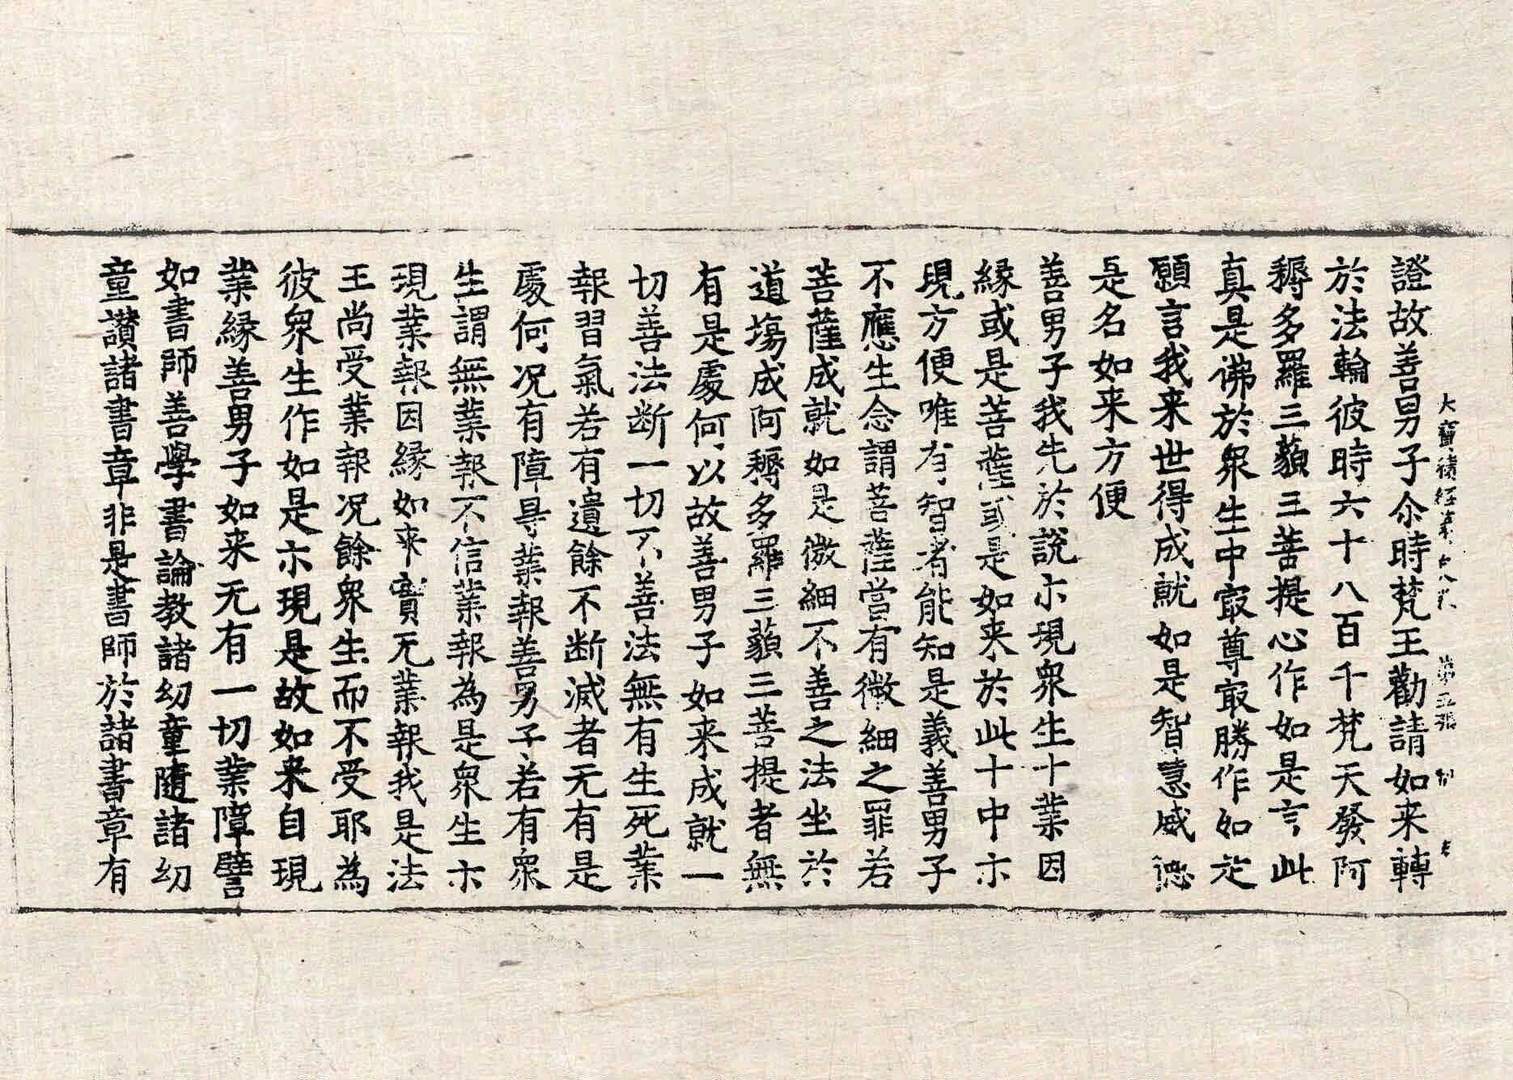 證故善男子尒時梵王勸請如来轉
於法輪彼時六十八百千梵天發阿
耨多羅三藐三菩提心作如是言此
真是佛於衆生中㝡尊㝡勝作如是
願言我来世得成就如是智慧威德
是名如来方便
善男子我先於說示現衆生十業因
緣或是菩薩或是如来於此十中示
現方便唯有智者能知是義善男子
不應生念謂菩薩當有微細之罪若
菩薩成就如是微細不善之法坐於
道場成阿耨多羅三藐三菩提者無
有是處何以故善男子如来成就一
切善法断一切不善法無有生死業
報習氣若有遺餘不断滅者无有是
處何况有障㝵業報善男子若有衆
生謂無業報不信業報為是衆生示
現業報因緣如来實无業報我是法
王尚受業報况餘衆生而不受耶為
彼衆生作如是示現是故如来自現
業緣善男子如来无有一切業障譬
如書師善學書論教諸幼童随諸幼
童讃諸書章非是書師於諸書章有
大寶積經 第五張